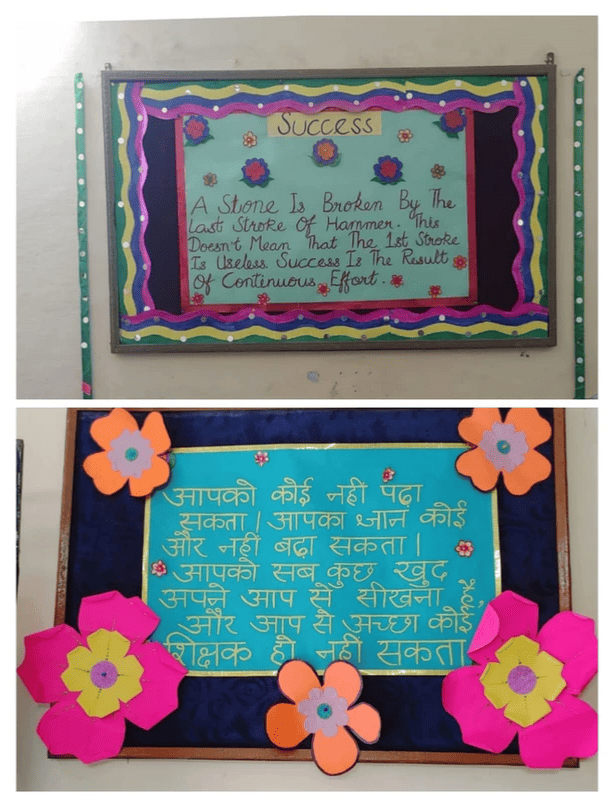 SUCCESS
A Stone Is Broken By The
Last Stroke Of Hammer. This
Doesn't Mean That The 1st Stroke
Is Useless. Success Is The Result
Of Continuous Effort.
आपको कोई नही पढ़ा
सकता। आपका ज्ञान कोई
और नहीं बढ़ा सकता।
आपको सब कुछ खुद
अपने आप से सीखना
और आप से अच्छा कोई
शिक्षक हो नही सकता